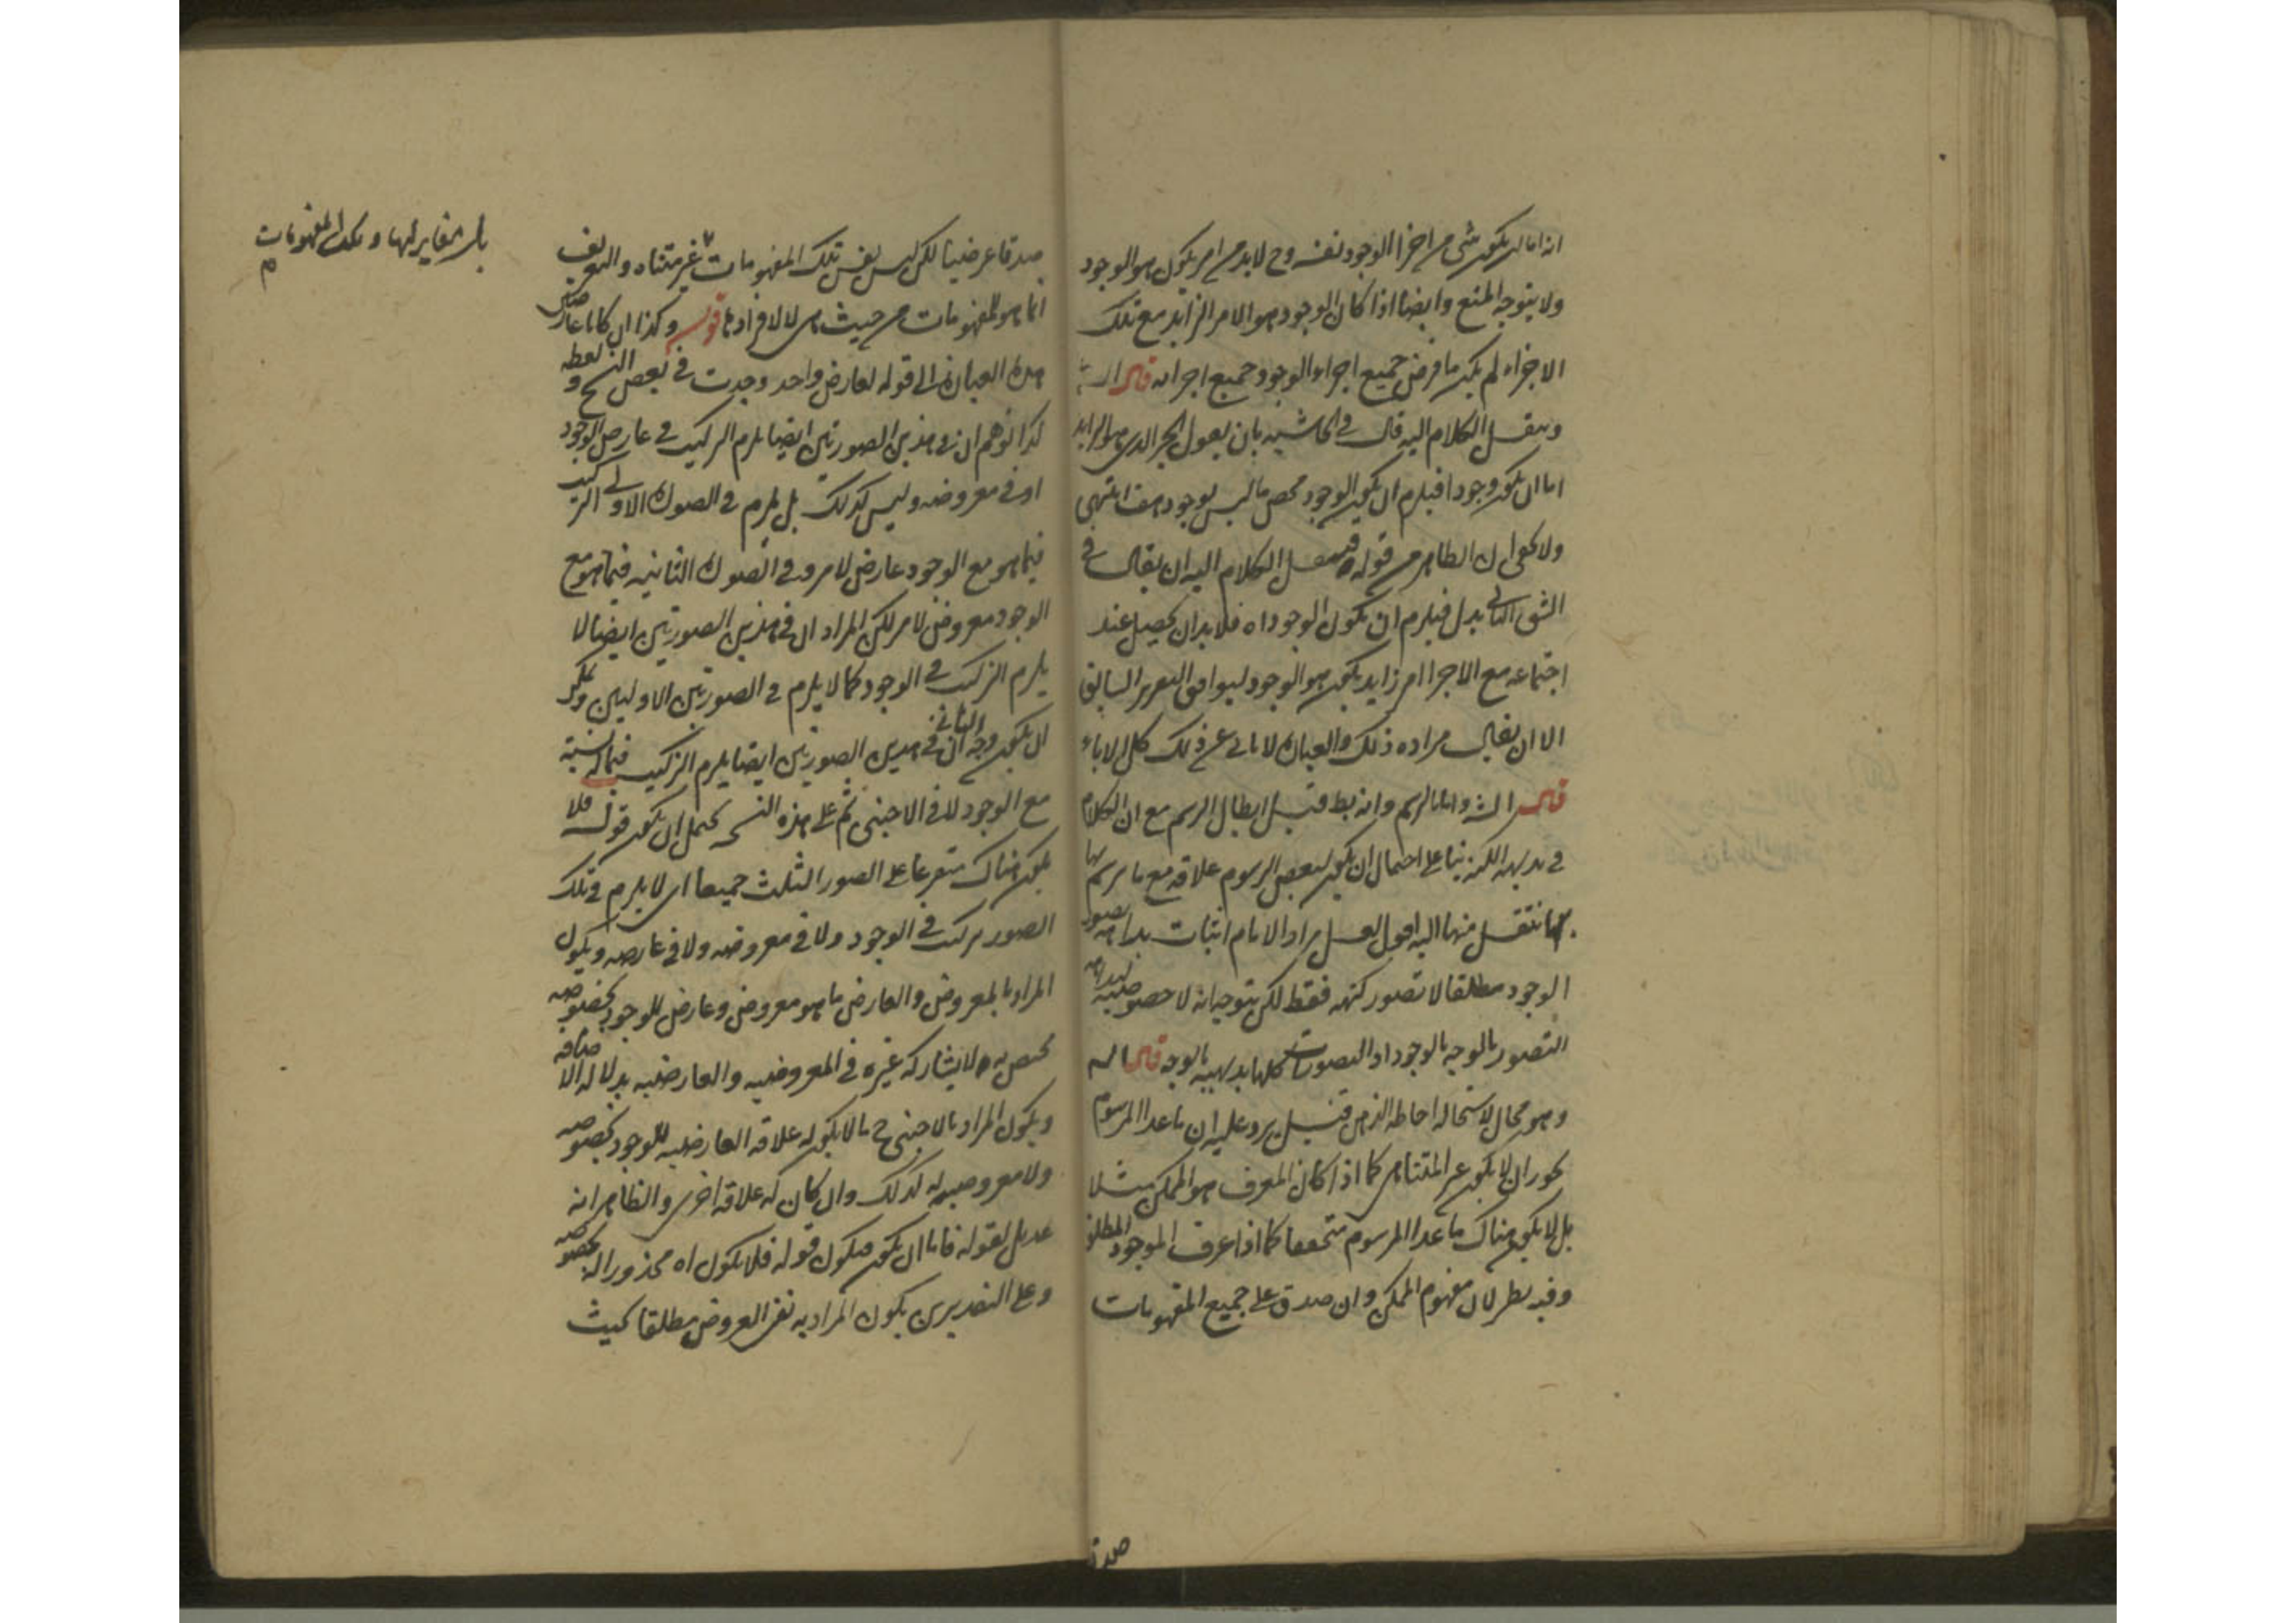 انه اما ان يكون شى من اجزا الوجود نفسه وح لا بد من امر يكون هو الوجود
ولا يتوجه المنع وايضا اذا كان الوجود هو الامر الزايد مع تلك
الاجزاء لم يكن ما فرض جميع اجزاء الوجود جميع اجزائه قال
وينقل الكلام اليه قال فى الحاشيه بان يقول الجزء الذى هو الزايد
اما ان يكون وجودا فيلزم ان يكون الوجود محض ما ليس بوجود هف انتهى
ولا يخفى ان الظاهر من قوله فينقل الكلام اليه ان يقال فى
الشق الثانى بدل فيلزم ان يكون الوجود اه فلا بد ان يحصل عند
اجتماعه مع الاجزا امر زايد يكون هو الوجود ليوافق التقرير السابق
الا ان يقال مراده ذلك والعباره لا تابى عن ذلك كل الاباء
قال الش واما الرسم وانه بط قيل ابطال الرسم مع ان الكلام
فى بديهه الكنه بنا على احتمال ان يكون لبعض الرسوم علاقه مع ما يرسم بها
ننتقل منها اليه اقول لعل مراد الامام اثبات بداهه تصور
الوجود مطلقا لا تصور كنهه فقط لكن يتوجه انه لا خصوصيه لبداهه
التصور بالوجه بالوجود اذ التصورات كلها بديهيه بالوجه قال
وهو محال لاستحاله احاطه الذهن قيل يرد عليه ان ما عدا المرسوم
يجوز ان لا يكون غير المتناهى كما اذا كان المعرف هو الممكن مثلا
بل لا يكون هناك ما عدا المرسوم متحققا كما اذا عرف الموجود المطلق
وفيه نظر لان مفهوم الممكن وان صدق على جميع المفهومات
صدقا
صدقا عرضيا لكن ليس نفس تلك المفهومات غير متناه والتعريف
انما هو للمفهومات من حيث هى لا لافرادها قوله وكذا ان كانا عارضين
هذه العباره الى قوله لعارض واحد وجدت فى بعض النسخ و لعله
لذا توهم ان فى هذين الصورتين ايضا يلزم التركيب فى عارض الوجود
او فى معروضه وليس كذلك بل يلزم فى الصوره الاولى التركيب
فيما هو مع الوجود عارض لامر وفى الصوره الثانيه فيما هو مع
الوجود معروض لامر لكن المراد ان فى هذين الصورتين ايضا لا
يلزم التركيب فى الوجود كما لا يلزم فى الصورتين الاوليين ويمكن
ان يكون وجه الثانى ان فى هذين الصورتين ايضا يلزم التركيب فيما له نسبة
مع الوجود لا فى الاجنبى ثم على هذه النسخ يحتمل ان يكون قوله فلا
يكون هناك متفرعا على الصور الثلث جميعا اى لا يلزم فى تلك
الصور تركب فى الوجود ولا فى معروضه ولا فى عارضه ويكون
المراد بالمعروض والعارض ما هو معروض وعارض للوجود بخصوصه
مختص به ولا يشاركه غيره فى المعروضيه والعارضيه بدلاله الاضافه
ويكون المراد بالاجنبى ح ما لا يكون له علاقه العارضيه للوجود بخصوصه
ولا معروضيه له كذلك وان كان له علاقه اخرى والظاهر انه
عديل لقوله فاما ان يكون فيكون قوله فلا يكون اه محذورا له بخصوصه
وعلى التقديرين يكون المراد به نفى العروض مطلقا بحيث